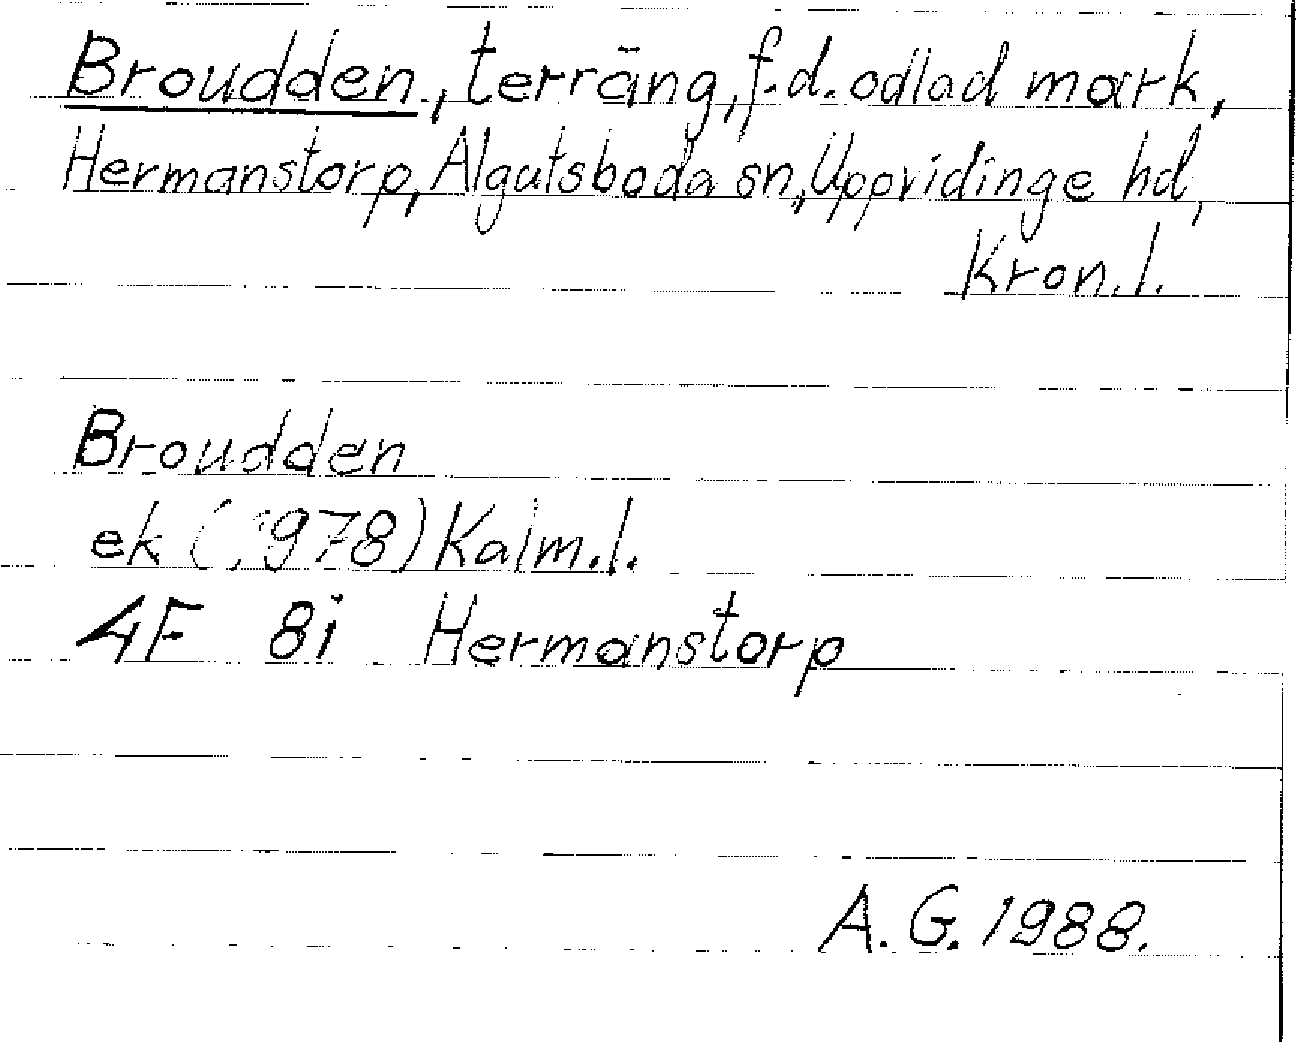 Broudden, terräng, f.d. odlad mark,
Hermanstorp, Algutsboda sn, Uppvidinge hd,
Kron. l.
Broudden
ek (1978) Kalm. l.
4F 8i Hermanstorp
A. G. 1988.